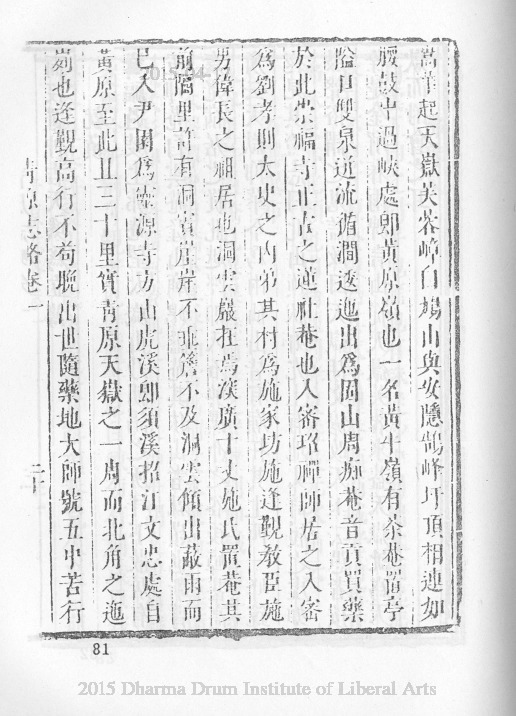 嵩華起天嶽芙蓉嶂自鴉山與安隱鵠峰圩頂相連如
腰鼓中過峽處卽黃原嶺也一名黃牛嶺有茶菴置亭
隘口雙泉逆流循澗逶迤出爲固山周痴菴音貢買藥
於此崇福寺正古之蓮社菴也入審珞禪師居之入審
爲劉孝則太史之內弟其村爲施家坊施逢覲敎臣施
男偉長之祖居也洞雲巖在焉深廣十丈施氏置菴其
前隔里許有洞賓崖岸不垂簷不及洞雲傾出蔽雨而
已入尹園爲靈源寺方山虎溪卽須溪招江文忠處自
黃原至此且三十里實靑原天嶽之一周而北角之迤
剡也逢覲高行不苟晚出世隨藥地大師號五中苦行
靑原志略卷一
二十
81
2015 Dharma Drum Institute of Liberal Arts